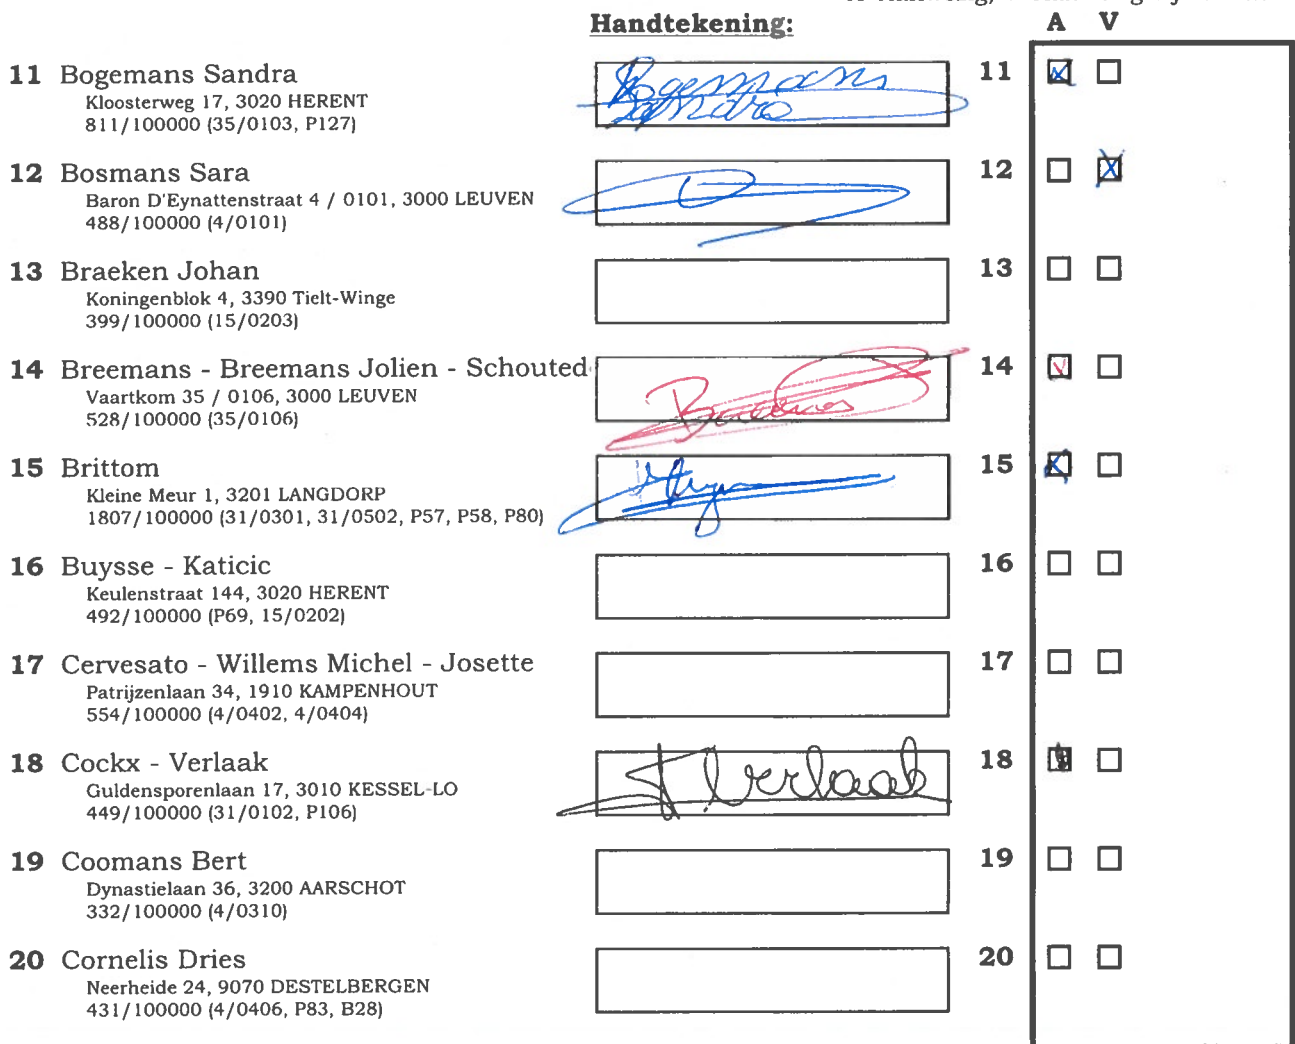 Handtekening:
A V
11 Bogemans Sandra
Kloosterweg 17, 3020 HERENT
811/100000 (35/0103, P127)
Bogemans
Sandra
11
12 Bosmans Sara
Baron D'Eynattenstraat 4 / 0101, 3000 LEUVEN
488/100000 (4/0101)
12
13 Braeken Johan
Koningenblok 4, 3390 Tielt-Winge
399/100000 (15/0203)
13
14 Breemans - Breemans Jolien - Schouted
Vaartkom 35 / 0106, 3000 LEUVEN
528/100000 (35/0106)
14
15 Brittom
Kleine Meur 1, 3201 LANGDORP
1807/100000 (31/0301, 31/0502, P57, P58, P80)
15
16 Buysse - Katicic
Keulenstraat 144, 3020 HERENT
492/100000 (P69, 15/0202)
16
17 Cervesato - Willems Michel - Josette
Patrijzenlaan 34, 1910 KAMPENHOUT
554/100000 (4/0402, 4/0404)
17
18 Cockx - Verlaak
Guldensporenlaan 17, 3010 KESSEL-LO
449/100000 (31/0102, P106)
Verlaak
18
19 Coomans Bert
Dynastielaan 36, 3200 AARSCHOT
332/100000 (4/0310)
19
20 Cornelis Dries
Neerheide 24, 9070 DESTELBERGEN
431/100000 (4/0406, P83, B28)
20